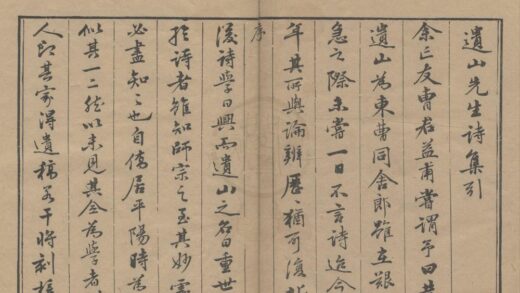 遺山先生詩集引
余亡友曹君益甫嘗謂予曰
遺山為東曹同舍郎雖在艱
急之際未嘗一日不言詩迨今
年其所與論辨歷〻猶可復
序
後詩學日興而遺山之名日重世
於詩者雖知師宗之至其妙處
必盡知之也自僑居平陽時為
似其一二然以未見其全為學者
人即其家得遺稿若干將刻